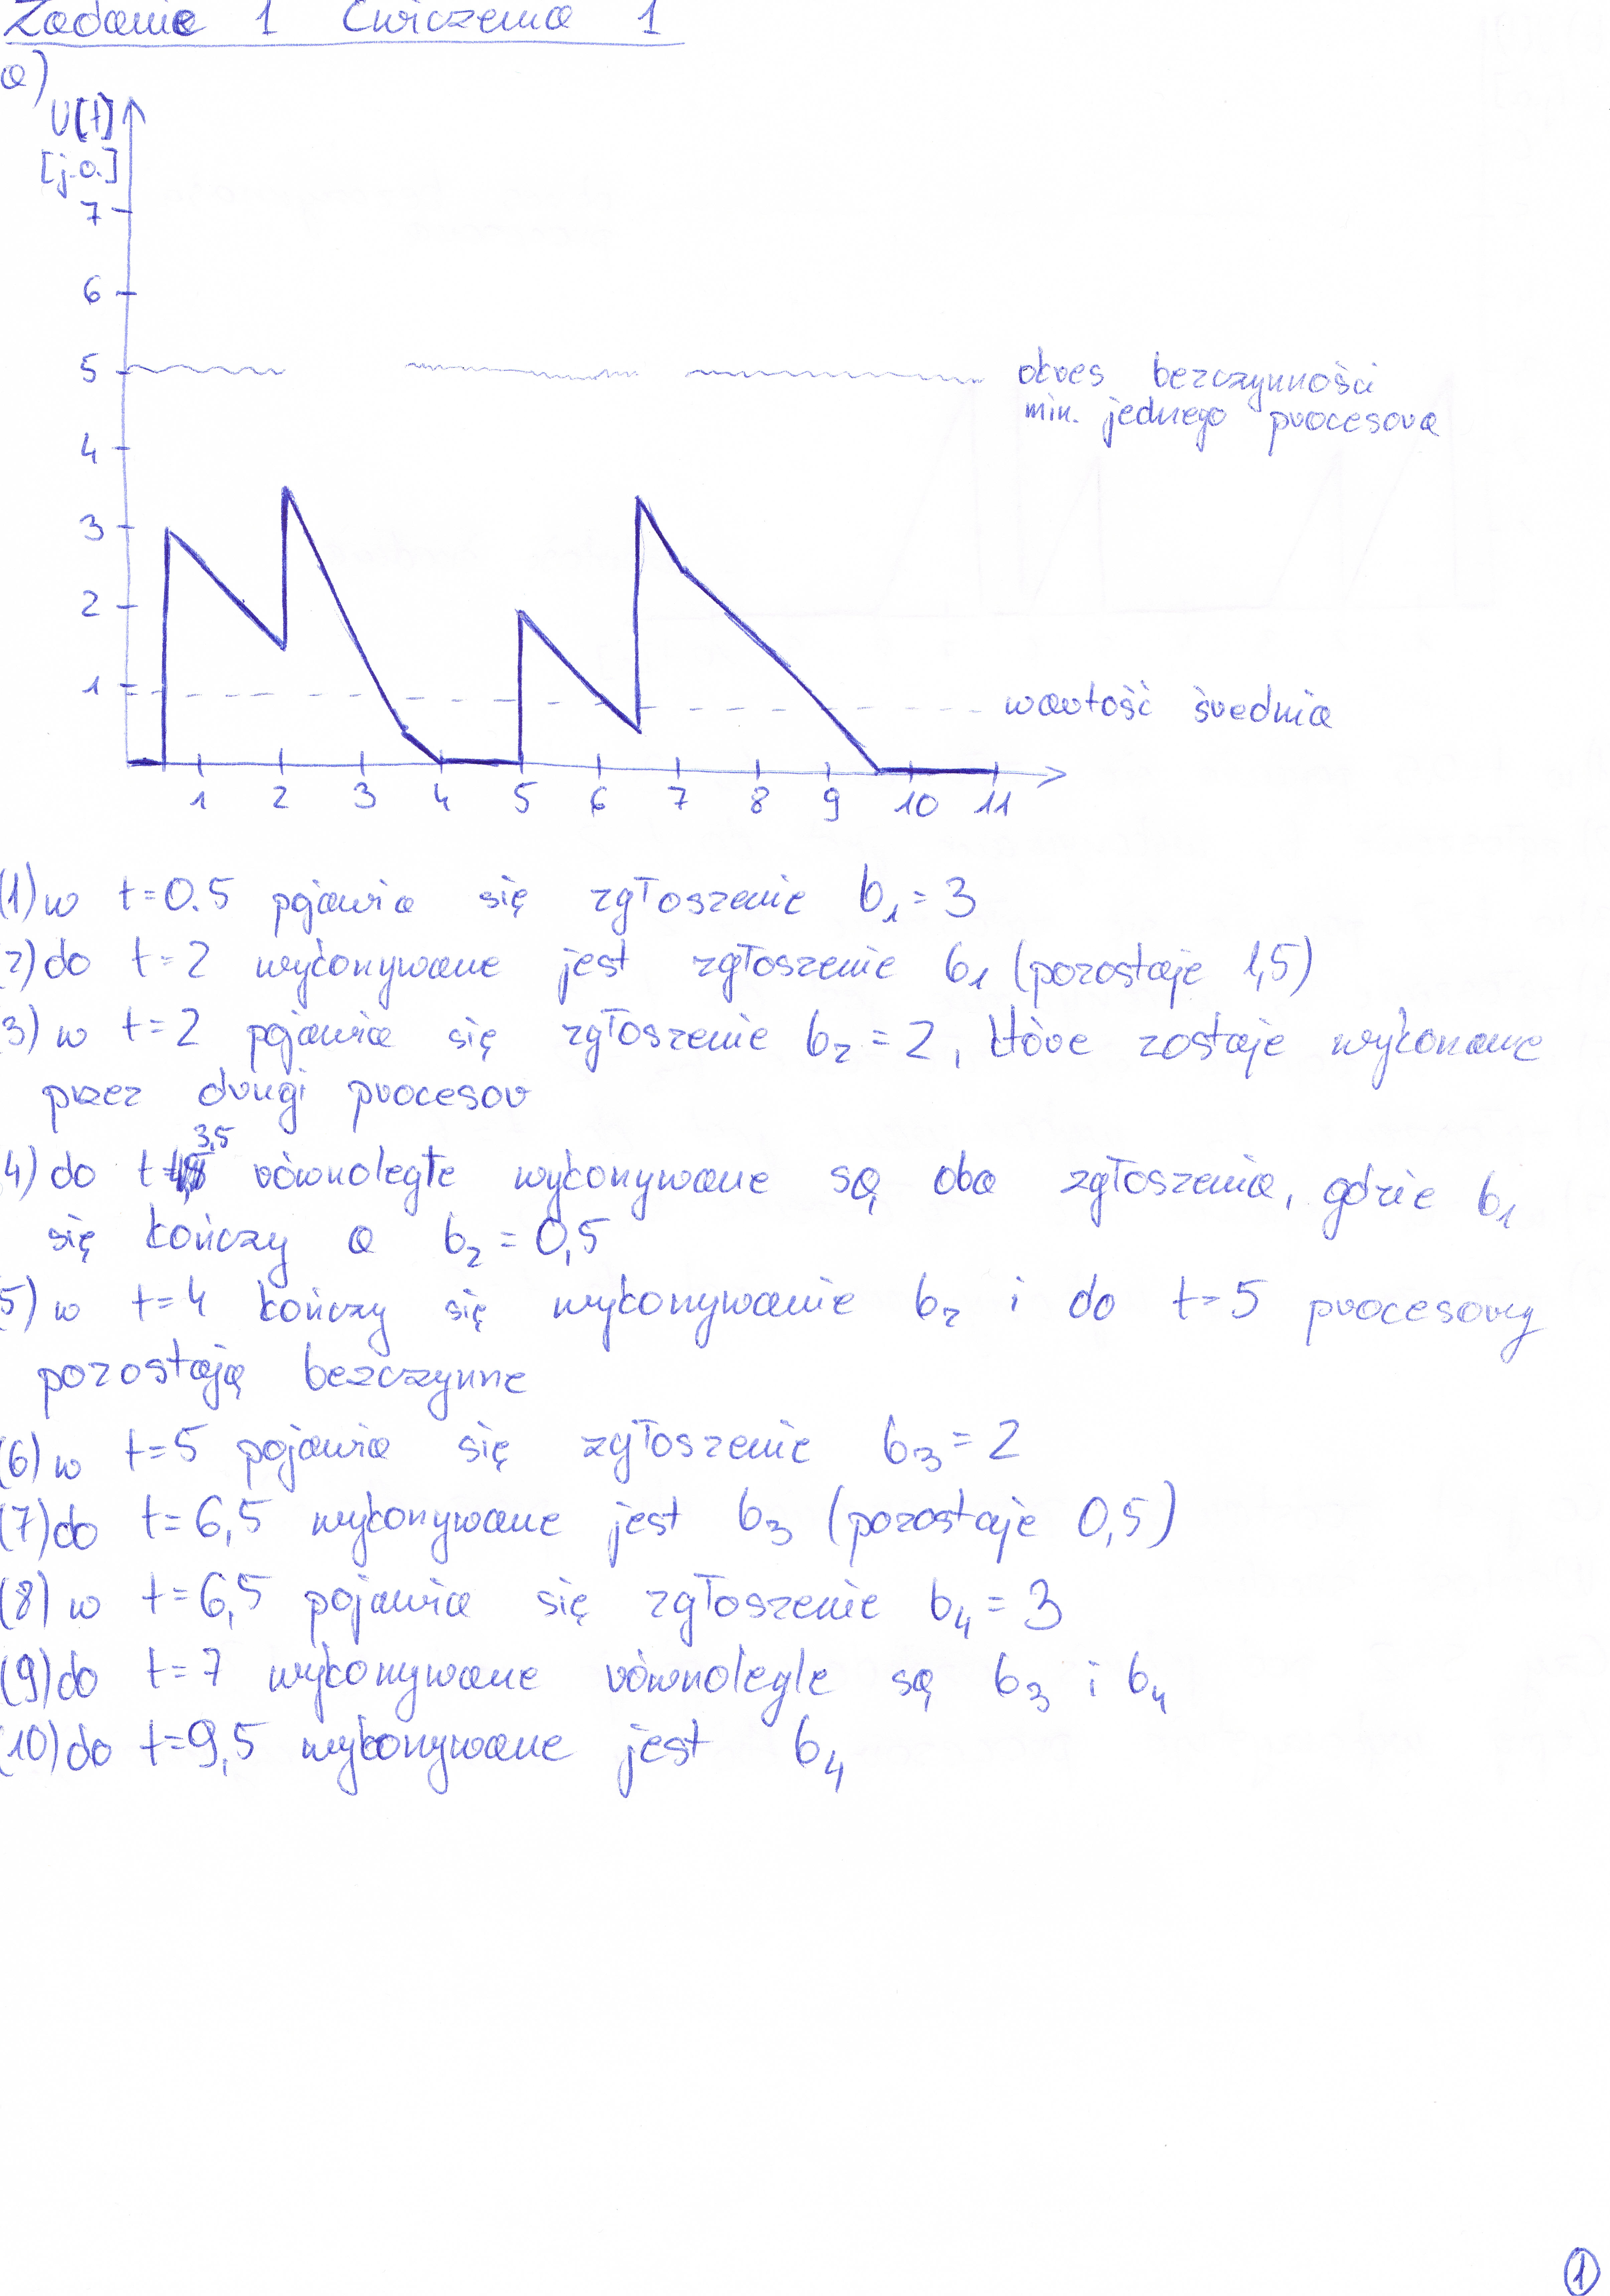 Zadanie 1 Ćwiczenia 1
a)
U(t)
[j.o.]
7
6
5
okres bezczynności
min. jednego procesora
4
3
2
1
wartość średnia
1 2 3 4 5 6 7 8 9 10 11
(1) w t=0.5 pojawia się zgłoszenie b1 = 3
2) do t=2 wykonywane jest zgłoszenie b1 (pozostaje 1,5)
3) w t=2 pojawia się zgłoszenie b2 = 2, które zostaje wykonane
przez drugi procesor
4) do t= 3,5 równoległe wykonywane są oba zgłoszenia, gdzie b1
się kończy a b2 = 0,5
5) w t=4 kończy się wykonywanie b2 i do t=5 procesory
pozostają bezczynne
(6) w t=5 pojawia się zgłoszenie b3 = 2
(7) do t=6,5 wykonywane jest b3 (pozostaje 0,5)
(8) w t=6,5 pojawia się zgłoszenie b4 = 3
(9) do t=7 wykonywane równolegle są b3 i b4
(10) do t=9,5 wykonywane jest b4
1